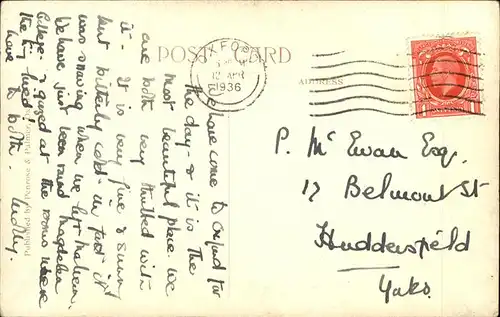 POST CARD
ADDRESS
OXFORD
12 APR
1936
We have come to Oxford for
the day - & it is the
most beautiful place. We
are both very thrilled with
it - It is very fine & sunny
but bitterly cold - in fact it
was snowing when we left Malvern.
We have just been round Magdalen
College & gazed at the rooms where
the King lived!
love to both.
P. Mc Ewan Esq.
17 Belmont St
Huddersfield
Yorks.